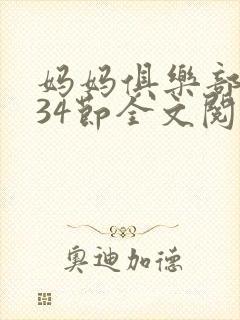 妈妈俱樂部
34節全文閱
奥迪加德